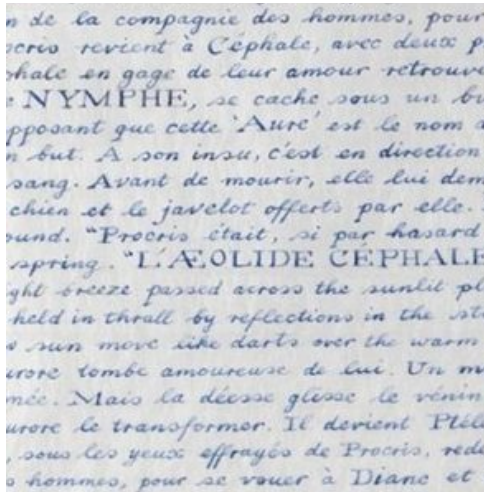 n de la compagnie des hommes, pour
ocris revient à Céphale, avec deux p
phale en gage de leur amour retrouvé
NYMPHE, se cache sous un bu
pposant que cette 'Aure' est le nom d
n but. A son insu, c'est en direction
sang. Avant de mourir, elle lui dem
chien et le javelot offerts par elle.
ound. "Procris était, si par hasard
spring. "L'ÆOLIDE CÉPHALE
ight breeze passed across the sunlit pl
held in thrall by reflections in the st
sun move like darts over the warm
urore tombe amoureuse de lui. Un m
mée. Mais la déesse glisse le vénin
urore le transformer. Il devient Ptél
, sous les yeux effrayés de Procris, rede
s hommes, pour se vouer à Diane et